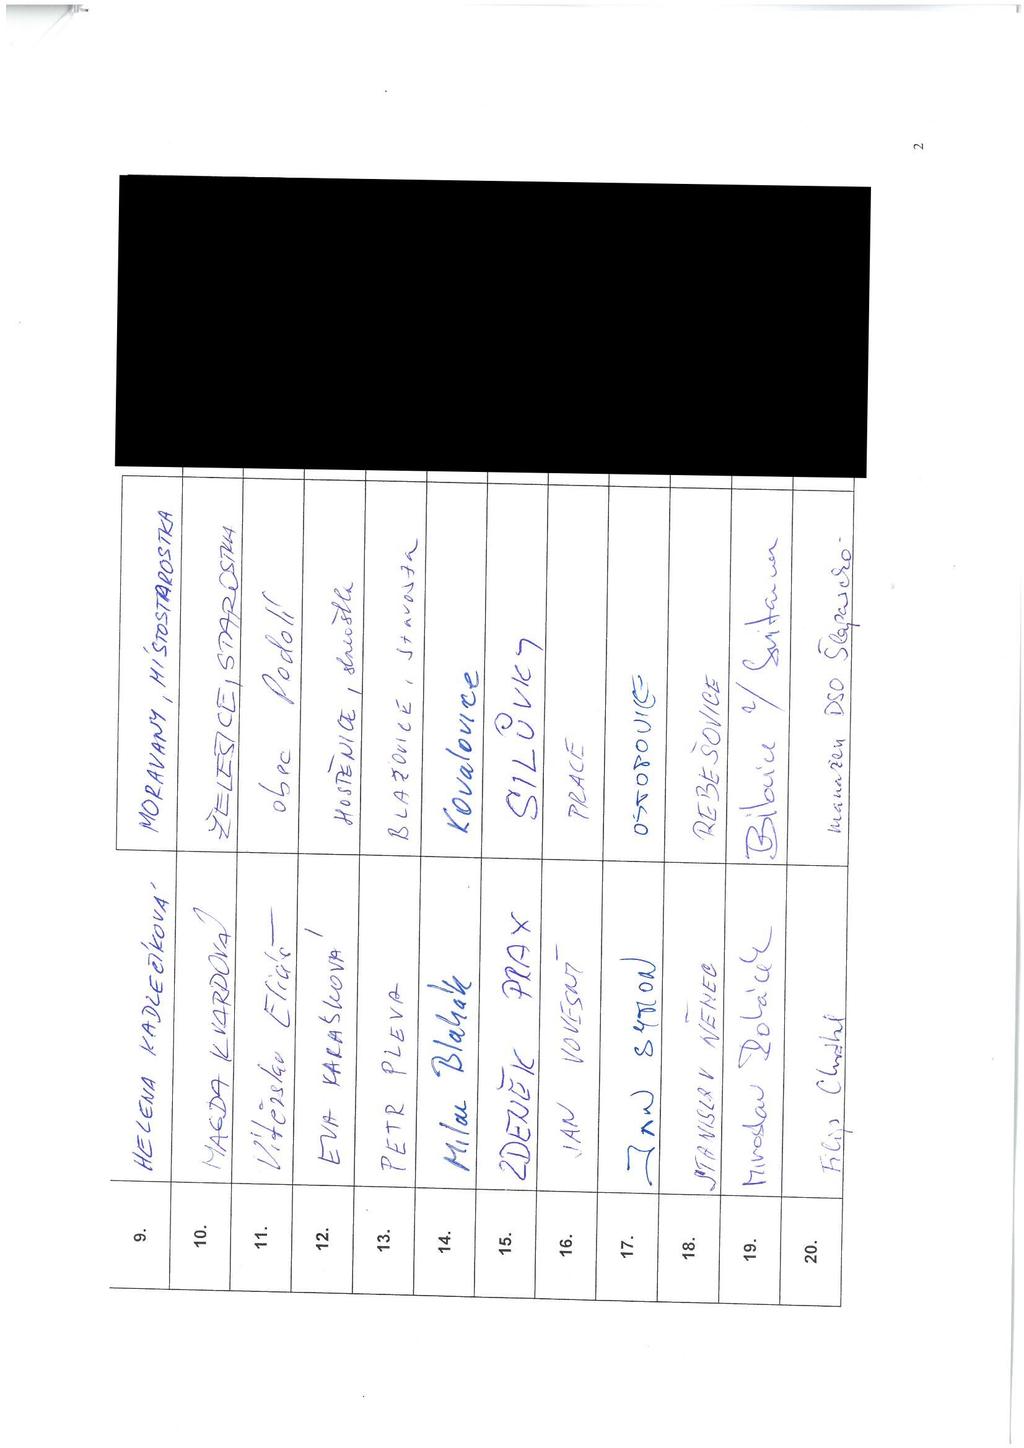 9. HELENA KADLEČÍKOVÁ MORAVANY, MÍSTOSTAROSTKA
10. MAGDA KVARDOVÁ ŽELEŠICE, STAROSTKA
11. Vítězslav Eliáš obec Podolí
12. EVA KARÁSKOVÁ HOSTĚNICE,
13. PETR PLEVA BLAŽOVICE, starosta
14. Milan Blahák Kovalovice
15. ZDENĚK PRAX SILŮVKY
16. JAN VOVESNÝ PRACE
17. JAN SYMON OSTOPOVICE
18. STANISLAV NĚMEC REBEŠOVICE
19. Miroslav Bílovice n/ Svitavou
20. Filip DSO Šlapanicko
2